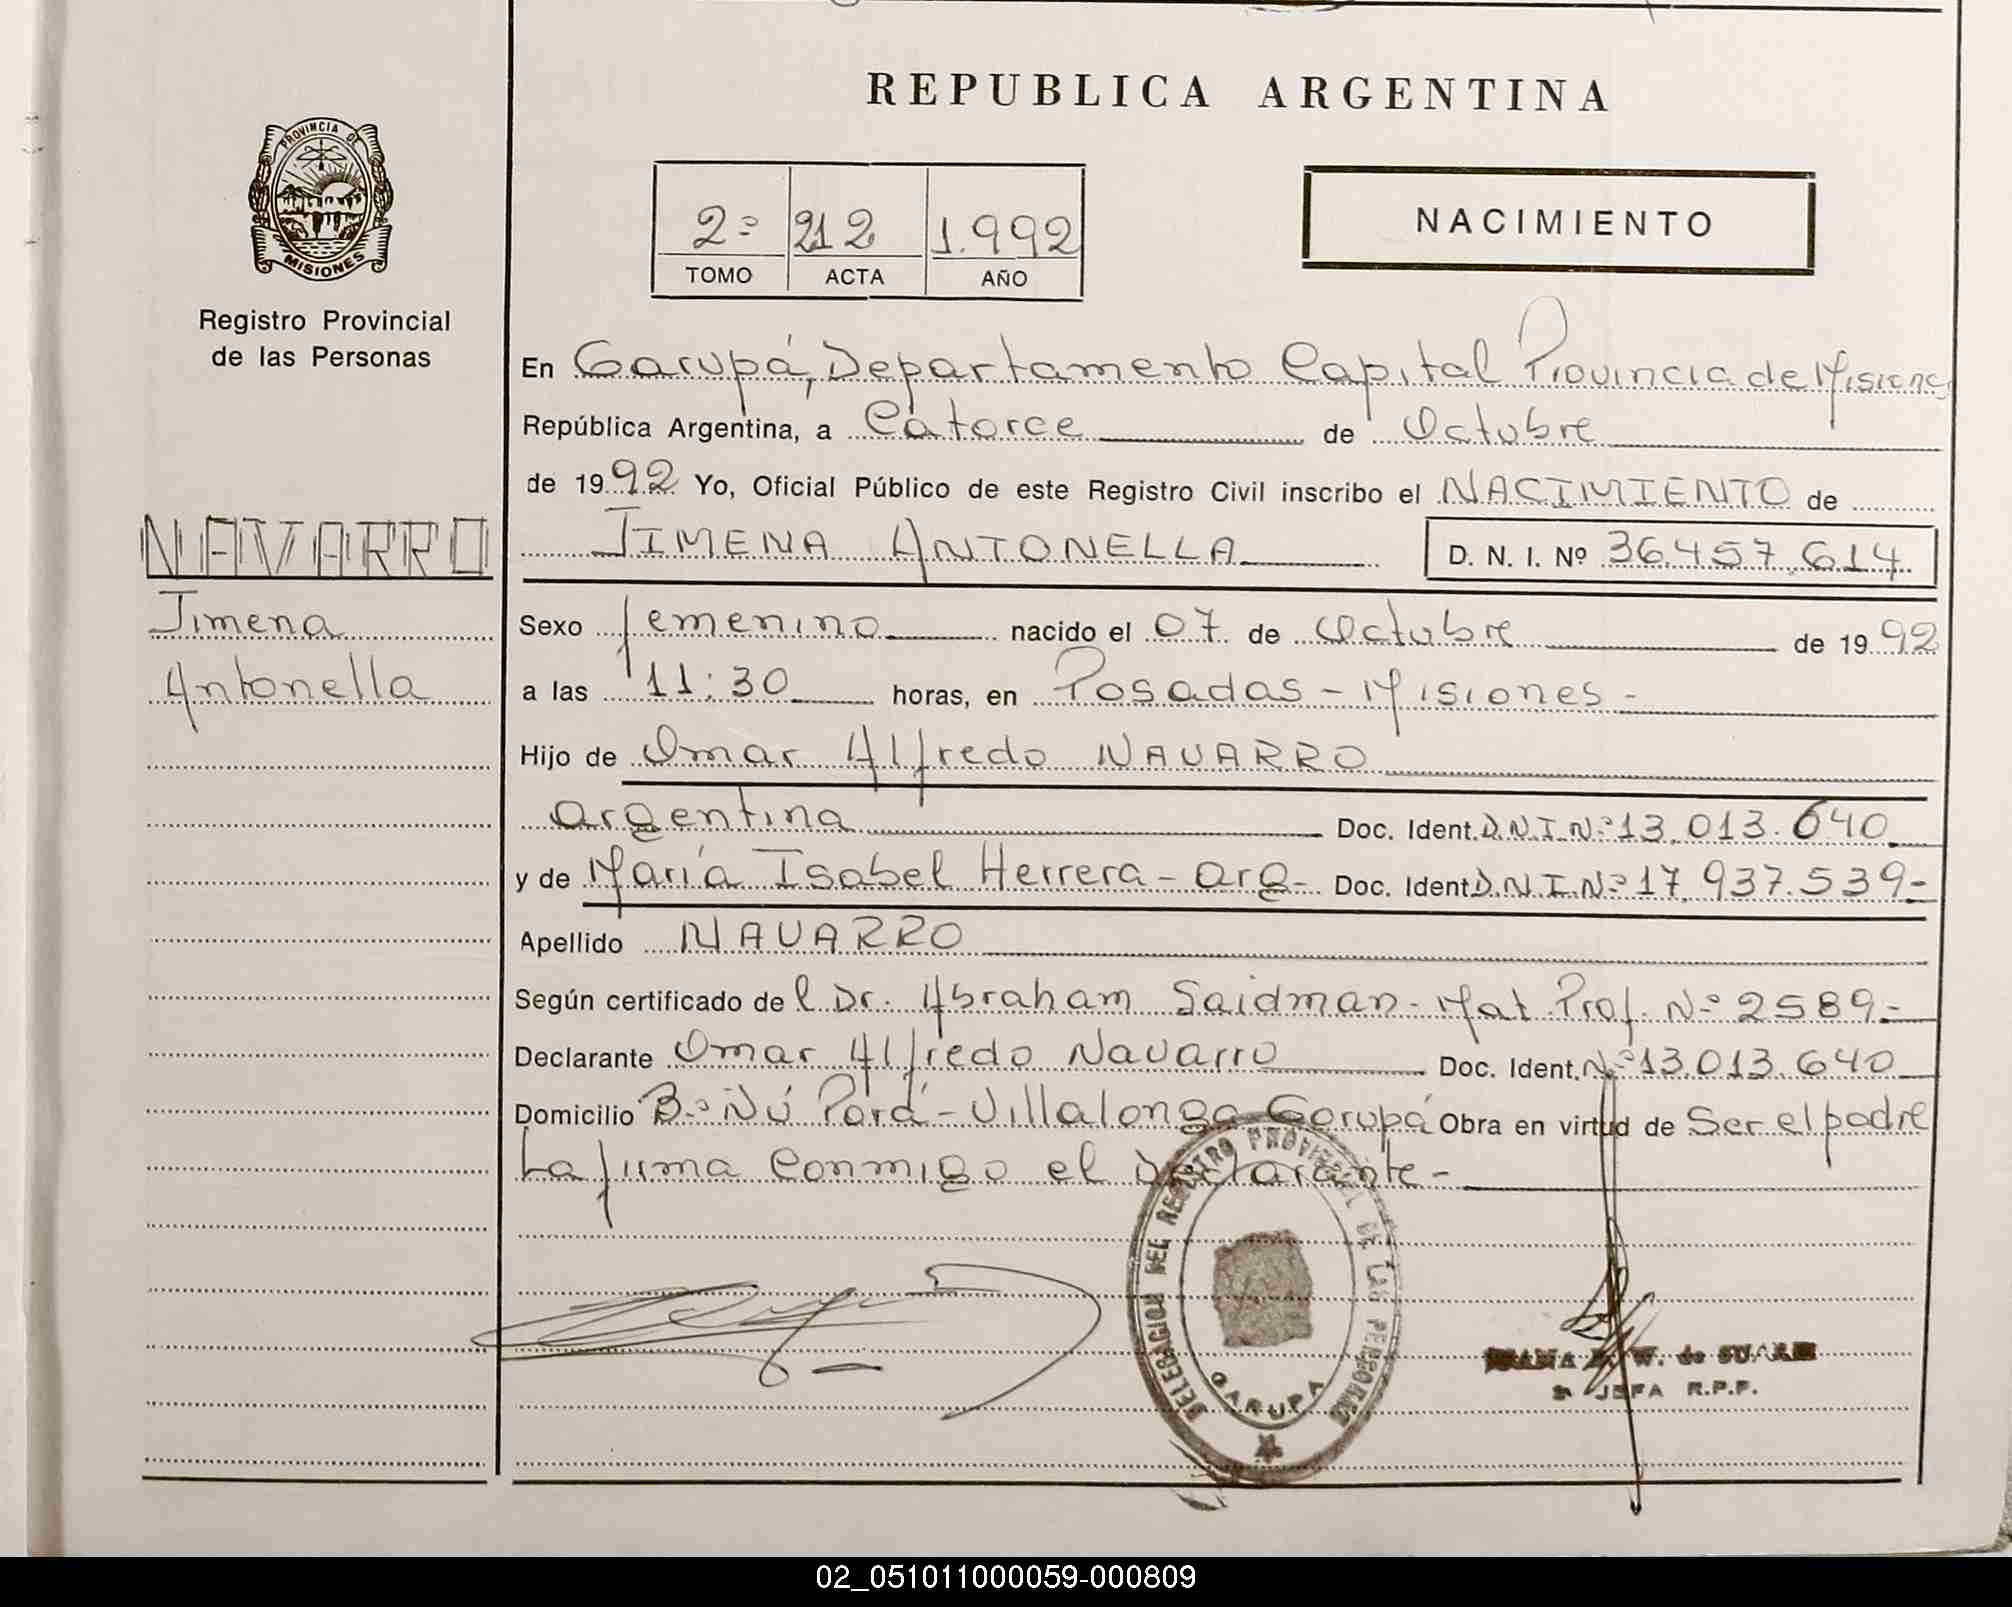 REPUBLICA ARGENTINA
PROVINCIA DE
MISIONES
Registro Provincial
de las Personas
2º 212 1.992
TOMO ACTA AÑO
NACIMIENTO
NAVARRO
Jimena
Antonella
En Garupá, Departamento Capital Provincia de Misiones
República Argentina, a Catorce de Octubre
de 1992 Yo, Oficial Público de este Registro Civil inscribo el NACIMIENTO de
JIMENA ANTONELLA D. N. I. Nº 36.457.614
Sexo femenino nacido el 07 de Octubre de 1992
a las 11:30 horas, en Posadas - Misiones -
Hijo de Omar Alfredo NAVARRO
argentina Doc. Ident. D.N.I.Nº 13.013.640
y de María Isabel Herrera - arg - Doc. Ident D.N.I.Nº 17.937.539-
Apellido NAVARRO
Según certificado de l Dr. Abraham Saidman - Mat. Prof. Nº 2589-
Declarante Omar Alfredo Navarro Doc. Ident. Nº 13.013.640
Domicilio Bº Ñú Porá - Villalonga Garupá Obra en virtud de Ser el padre
La firma conmigo el Declarante -
DELEGACION DEL REGISTRO PROVINCIAL DE LAS PERSONAS
GARUPA
W. de
JEFA R.P.P.
02_051011000059-000809